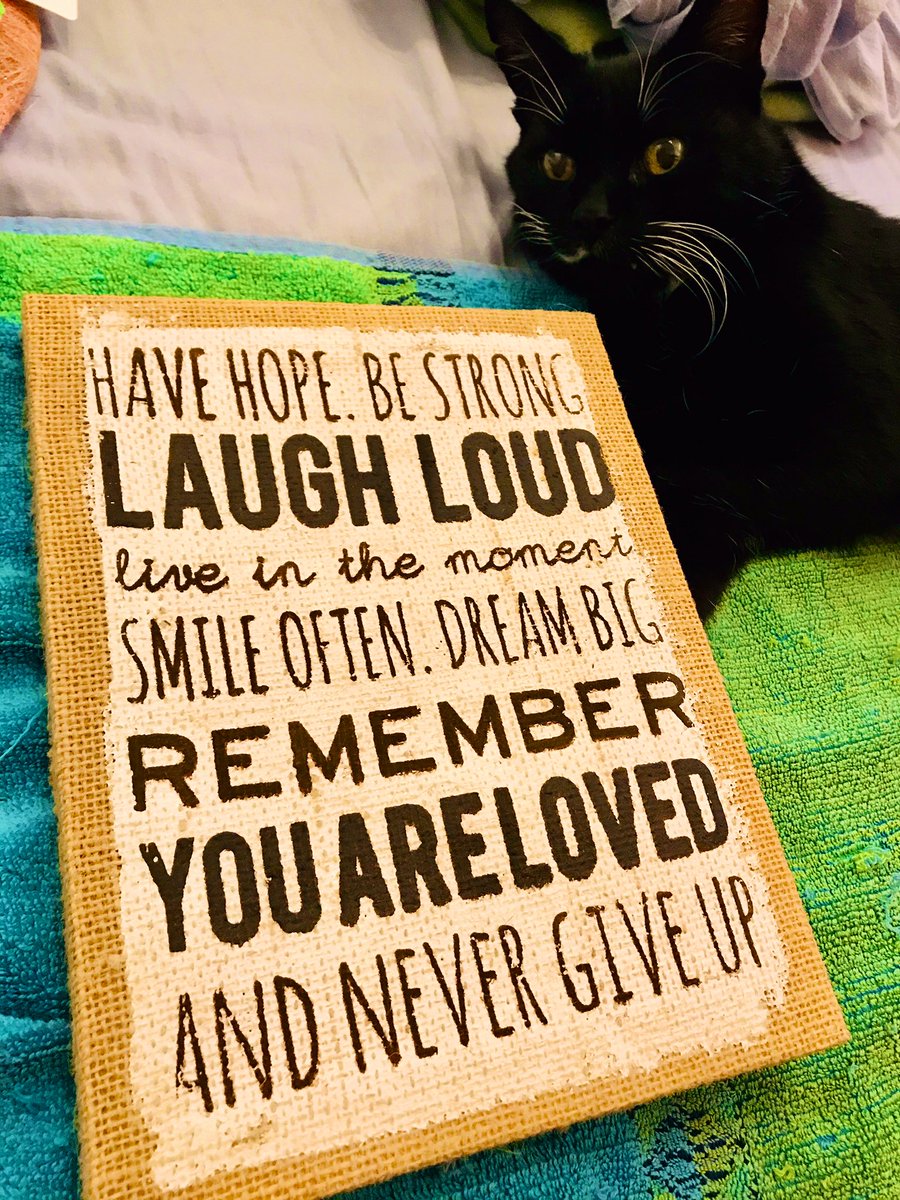 HAVE HOPE. BE STRONG
LAUGH LOUD
live in the moment
SMILE OFTEN. DREAM BIG
REMEMBER
YOU ARE LOVED
AND NEVER GIVE UP